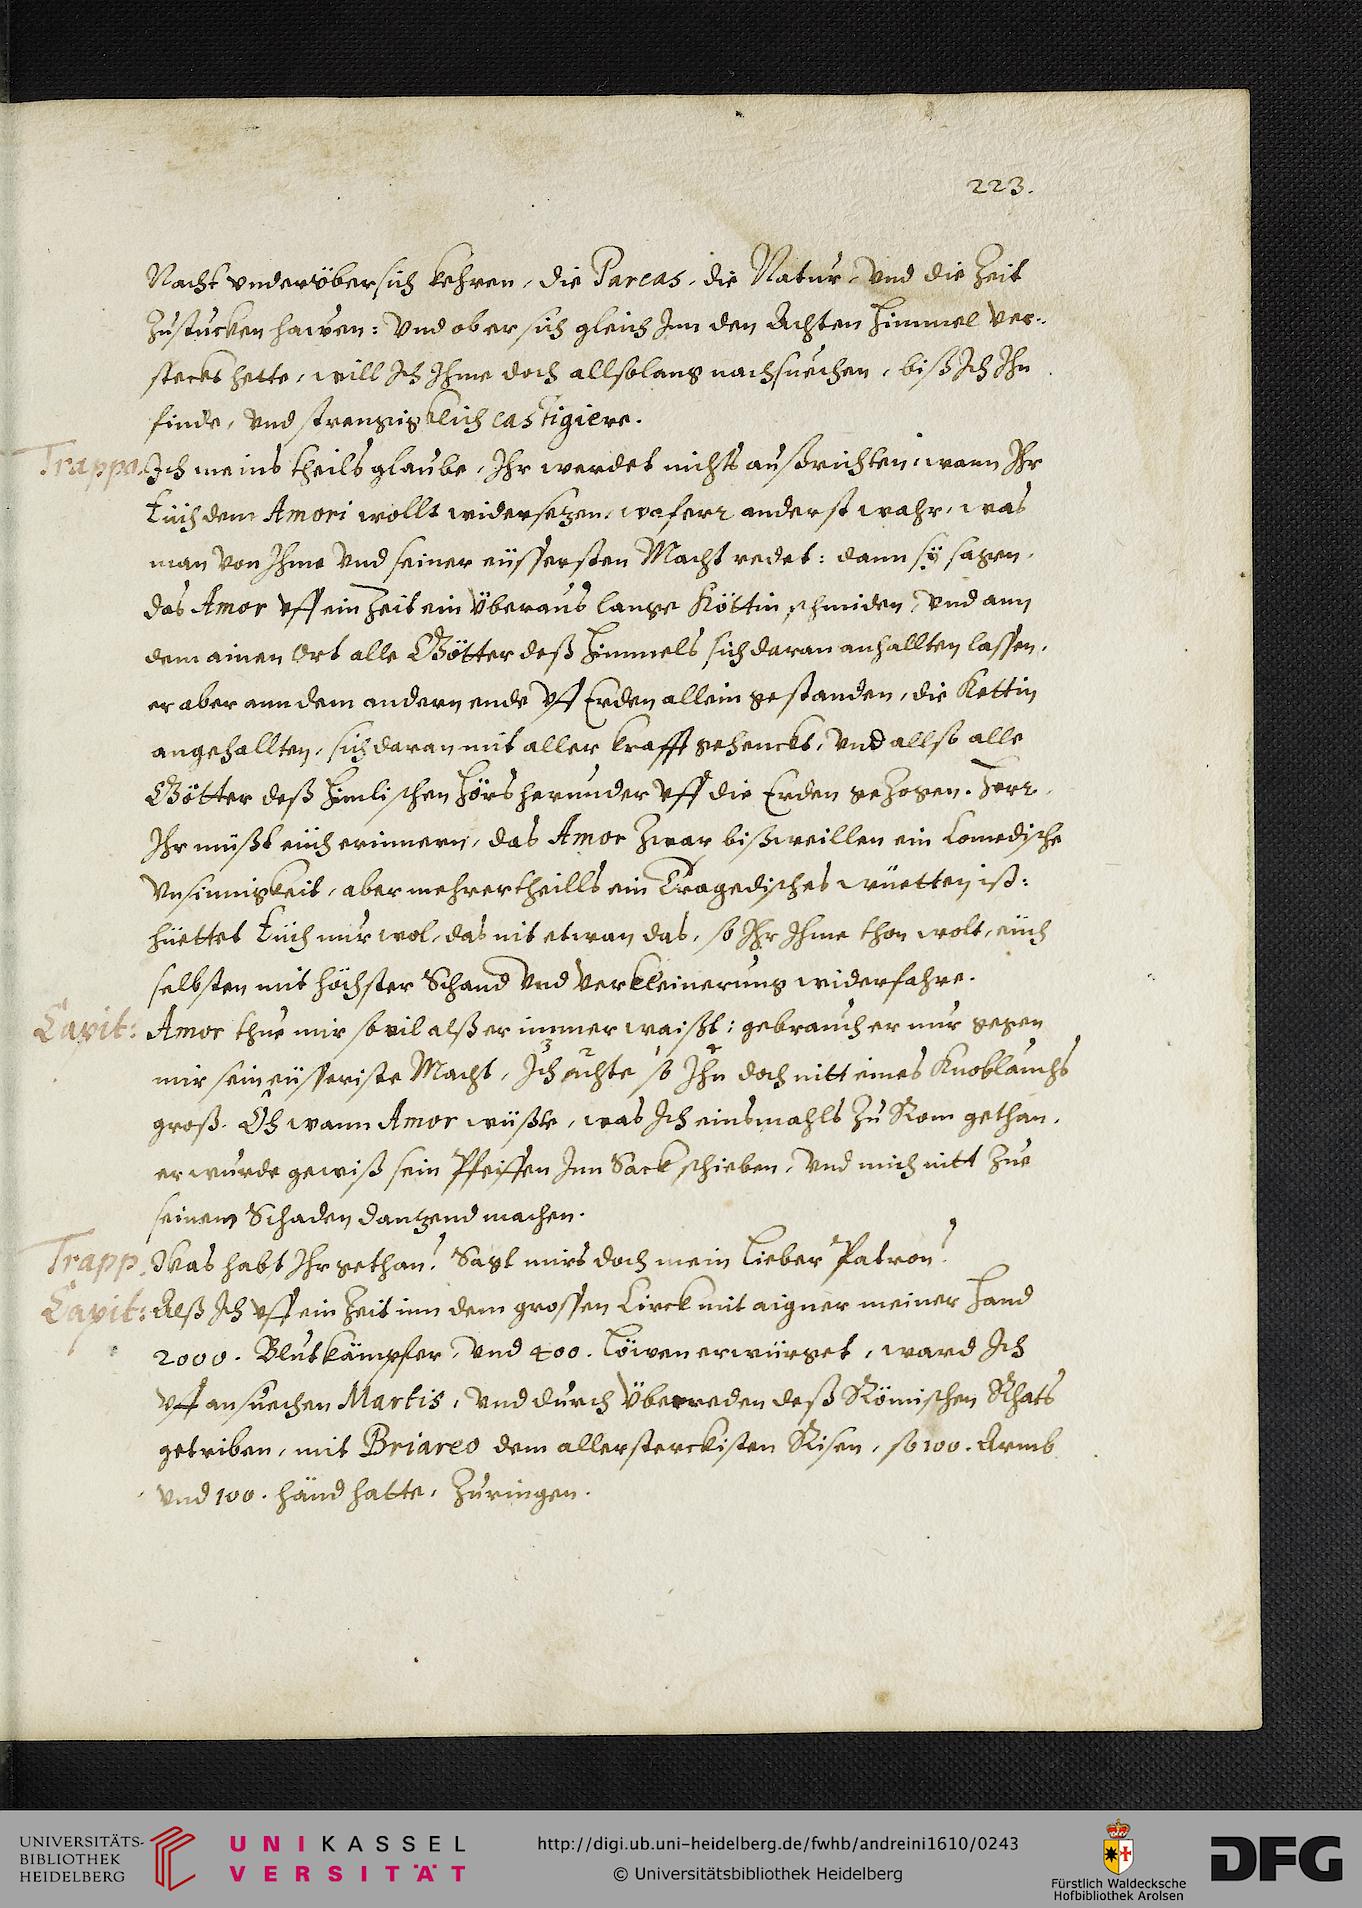 223.
Nacht underübersich kehren, die Parcas, die Natur, und die Zeit
zustucken hawen: Und ob er sich gleich Inn den Achten Himmel ver-
steckt hette, will Ich Ihme doch allsolang nachsuechen, biß Ich Ihn
finde, und strengigklich castigiere.
Trapp. Ich meins theils glaube, Ihr werdet nichts außrichten, wann Ihr
Eüch dem Amori wollt widersetzen, waferr anderst wahr, was
man von Ihme und seiner eüssersten Macht redet: dann sÿ sagen,
das Amor uff ein Zeit ein überaus lange Köttin schmiden, und ann
dem ainen Ort alle Götter deß Himmels sich daran anhallten lassen,
er aber ann dem andern ende uff Erden allein gestanden, die Kettin
angehallten, sich daran mit aller krafft gehenckt, und allso alle
Götter deß Himlischen Hörs herunder uff die Erden gezogen. Herr,
Ihr müßt eüch erinnern, das Amor zwar bißweillen ein Comedische
Unsinnigkeit, aber mehrertheills ein Tragedisches wüetten ist:
hüettet Eüch nur wol, das nit etwan das, so Ihr Ihme thon wolt, eüch
selbsten mit höchster Schand und verkleinerung widerfahre.
Capit: Amor thue mir sovil alß er immer waißt: gebrauch er nur gegen
mir sein eüsseriste Macht, Ich achte so Ihn doch nitt eines Knoblauchs
groß. Oh wann Amor wüßte, was Ich einsmahls zu Rom gethan,
er wurde gewiß sein Pfeiffen Inn Sack schieben, und mich nitt zue
seinem Schaden dantzend machen.
Trapp. Was habt Ihr gethan? Sagt mirs doch mein lieber Patron?
Capit: Alß Ich uff ein Zeit inn dem grossen Circk mit aigner meiner Hand
2000. Blutkämpfer, und 400. Löwen erwürget, ward Ich
uff ansuechen Martis, und durch überreden deß Römischen Rhats
getriben, mit Briareo dem allersterckisten Risen, so 100. Armb
und 100. händ hatte, zuringen.
UNIVERSITÄTS-
BIBLIOTHEK
HEIDELBERG
UNIKASSEL
VERSITÄT
http://digi.ub.uni-heidelberg.de/fwhb/andreini1610/0243
© Universitätsbibliothek Heidelberg
Fürstlich Waldecksche
Hofbibliothek Arolsen
DFG